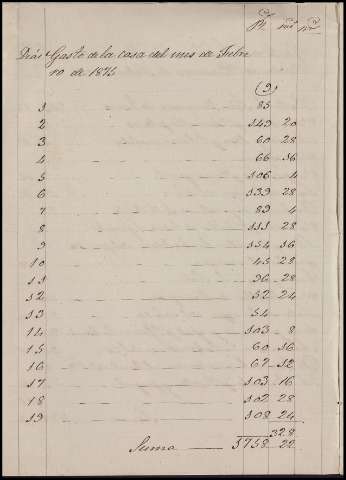 Dias Gasto de la casa del mes de Febre
ro de 1875
(9)
1 85
2 149 20
3 60 28
4 66 16
5 106 4
6 139 28
7 89 4
8 111 28
9 154 16
10 45 28
11 96 28
12 52 24
13 54
14 103 8
15 60 16
16 67 12
17 103 16
18 102 28
19 108 24
328
Suma 1758 22